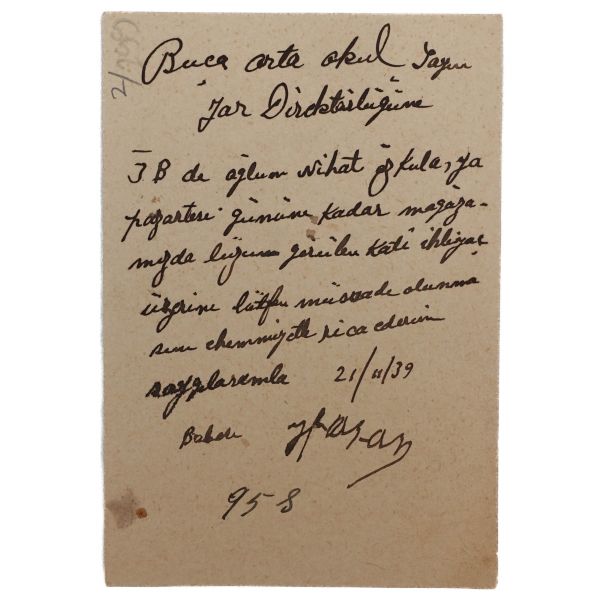 Buca orta okul Sayın
Jar Direktörlüğüne
3 B de oğlum Nihat Özkula, ya
pazartesi gününe kadar mağaza-
mızda lüzum görülen kati ihtiyaç
üzerine lütfen müsaade olunma
sını ehemmiyetle rica ederim
saygılarımla 21/11/39
Babası Hasan
958